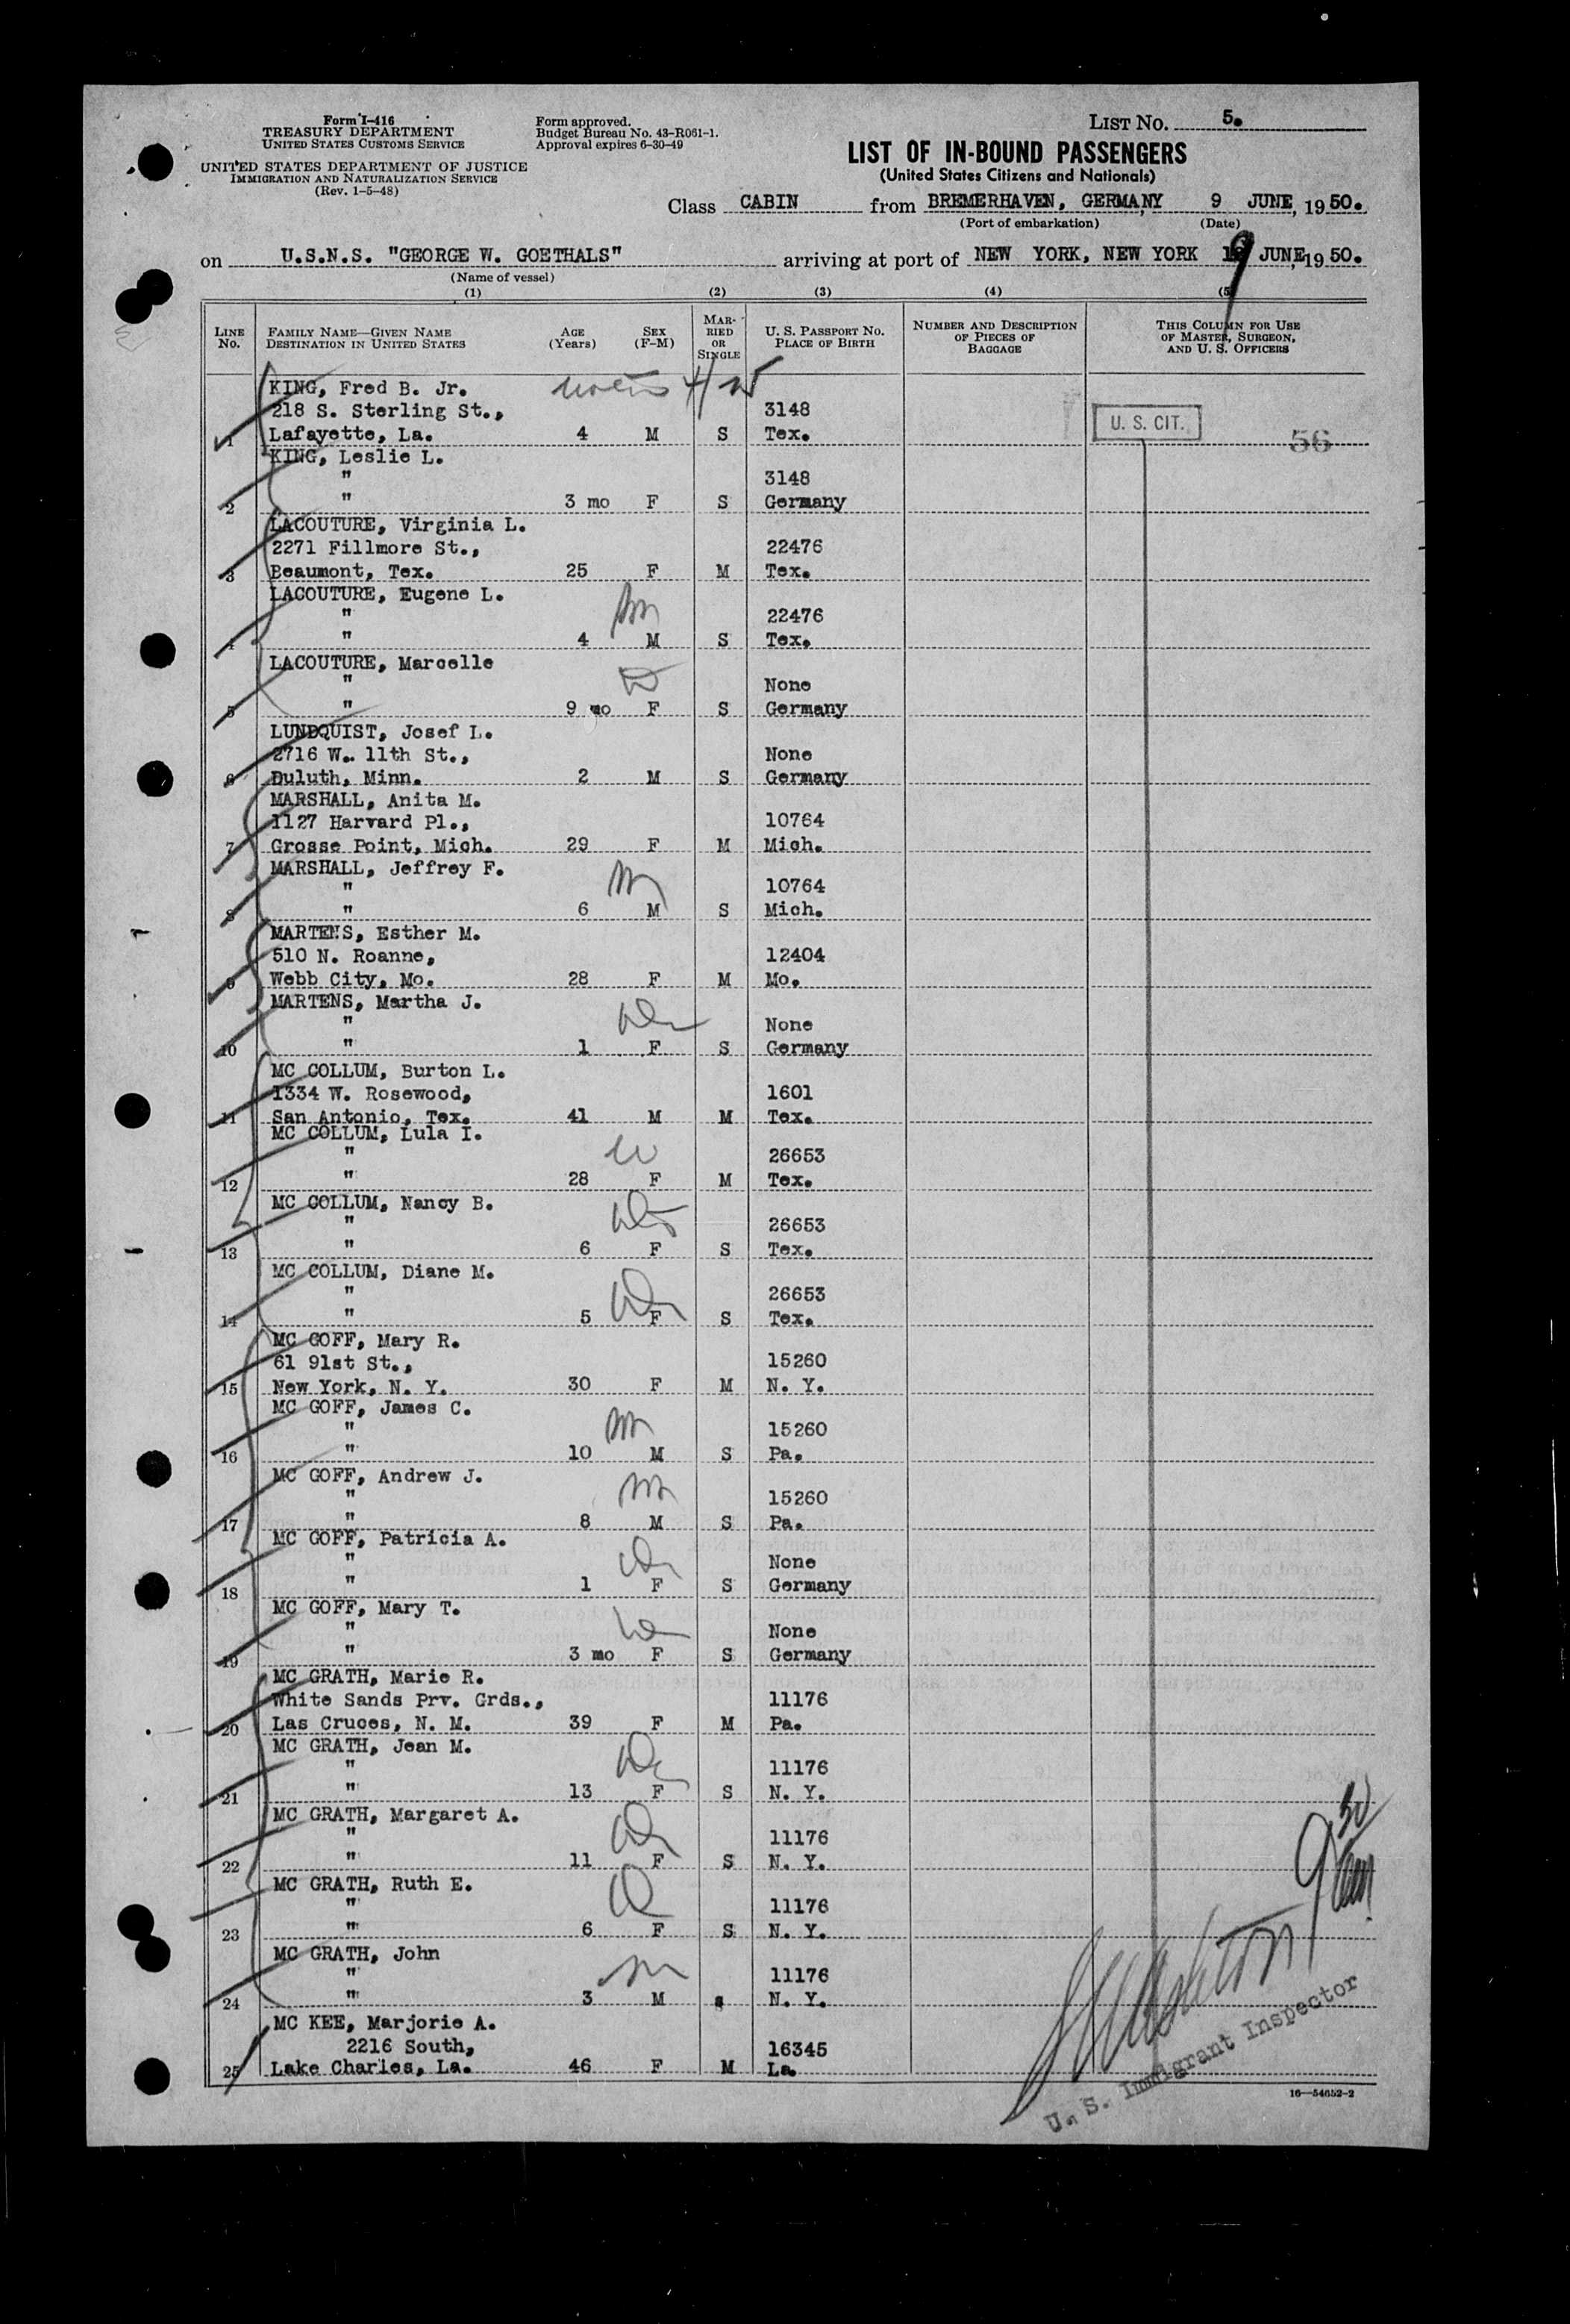 Form I-416
TREASURY DEPARTMENT
UNITED STATES CUSTOMS SERVICE
UNITED STATES DEPARTMENT OF JUSTICE
IMMIGRATION AND NATURALIZATION SERVICE
(Rev. 1-5-48)
Form approved.
Budget Bureau No. 43-R061-1.
Approval expires 6-30-49
LIST NO. 5.
LIST OF IN-BOUND PASSENGERS
(United States Citizens and Nationals)
Class CABIN from BREMERHAVEN, GERMANY 9 JUNE, 1950.
(Port of embarkation) (Date)
on U.S.N.S. "GEORGE W. GOETHALS" arriving at port of NEW YORK, NEW YORK 9 JUNE, 1950.
(Name of vessel)
(1) (2) (3) (4) (5)
LINE No. FAMILY NAME—GIVEN NAME DESTINATION IN UNITED STATES AGE (Years) SEX (F-M) MARRIED OR SINGLE U. S. PASSPORT NO. PLACE OF BIRTH NUMBER AND DESCRIPTION OF PIECES OF BAGGAGE THIS COLUMN FOR USE OF MASTER, SURGEON, AND U. S. OFFICERS
KING, Fred B. Jr.
218 S. Sterling St., 3148
1 Lafayette, La. 4 M S Tex. U. S. CIT. 56
KING, Leslie L.
" 3148
2 " 3 mo F S Germany
LACOUTURE, Virginia L.
2271 Fillmore St., 22476
3 Beaumont, Tex. 25 F M Tex.
LACOUTURE, Eugene L.
" 22476
4 " 4 M S Tex.
LACOUTURE, Marcelle
" None
5 " 9 mo F S Germany
LUNDQUIST, Josef L.
2716 W. 11th St., None
6 Duluth, Minn. 2 M S Germany
MARSHALL, Anita M.
1127 Harvard Pl., 10764
7 Grosse Point, Mich. 29 F M Mich.
MARSHALL, Jeffrey F.
" 10764
8 " 6 M S Mich.
MARTENS, Esther M.
510 N. Roanne, 12404
9 Webb City, Mo. 28 F M Mo.
MARTENS, Martha J.
" None
10 " 1 F S Germany
MC COLLUM, Burton L.
1334 W. Rosewood, 1601
11 San Antonio, Tex. 41 M M Tex.
MC COLLUM, Lula I.
" 26653
12 " 28 F M Tex.
MC COLLUM, Nancy B.
" 26653
13 " 6 F S Tex.
MC COLLUM, Diane M.
" 26653
14 " 5 F S Tex.
MC GOFF, Mary R.
61 91st St., 15260
15 New York, N. Y. 30 F M N. Y.
MC GOFF, James C.
" 15260
16 " 10 M S Pa.
MC GOFF, Andrew J.
" 15260
17 " 8 M S Pa.
MC GOFF, Patricia A.
" None
18 " 1 F S Germany
MC GOFF, Mary T.
" None
19 " 3 mo F S Germany
MC GRATH, Marie R.
White Sands Prv. Grds., 11176
20 Las Cruces, N. M. 39 F M Pa.
MC GRATH, Jean M.
" 11176
21 " 13 F S N. Y.
MC GRATH, Margaret A.
" 11176
22 " 11 F S N. Y.
MC GRATH, Ruth E.
" 11176
23 " 6 F S N. Y.
MC GRATH, John
" 11176
24 " 3 M s N. Y.
MC KEE, Marjorie A.
2216 South, 16345
25 Lake Charles, La. 46 F M La.
9 30 am
U. S. Immigrant Inspector
16—54652-2